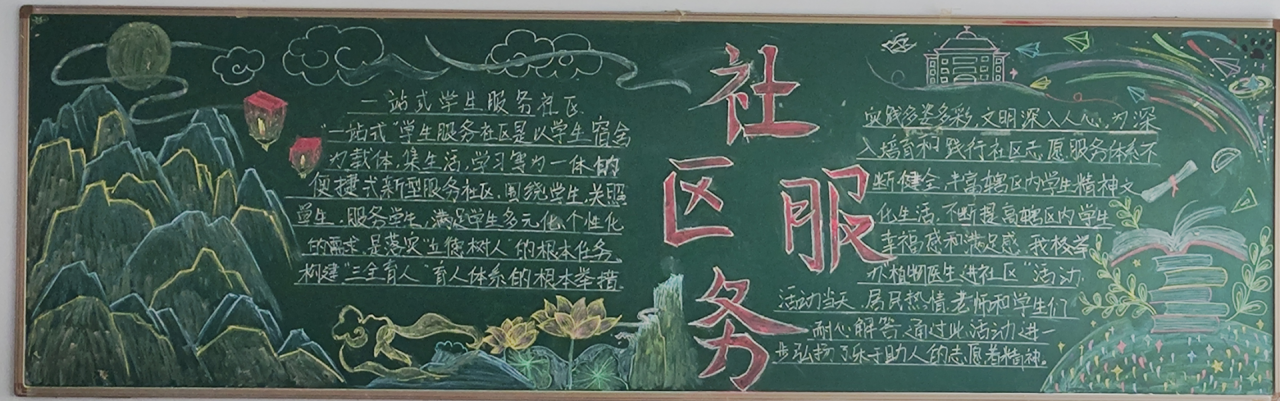 一站式学生服务社区
"一站式"学生服务社区是以学生宿舍
为载体,集生活,学习等为一体的
便捷式新型服务社区,围绕学生,关照
学生,服务学生,满足学生多元化,个性化
的需求,是落实"立德树人"的根本任务,
构建"三全育人"育人体系的根本举措.
社区服务
实践多姿多彩,文明深入人心,为深
入培育和践行社区志愿服务体系不
断健全,丰富辖区内学生精神文
化生活,不断提高辖区内学生
幸福感和满足感,我校举
办植物医生进社区"活动,
活动当天,居民热情,老师和学生们
耐心解答,通过此活动进一
步弘扬了乐于助人的志愿者精神.